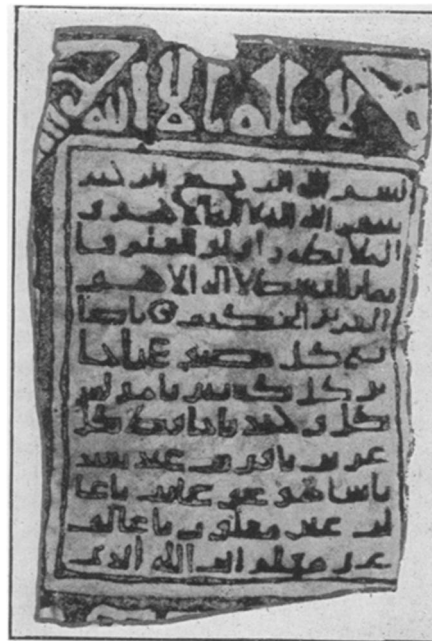 لا اله الا الله
بسم الله الرحمن الرحيم
شهد الله انه لا اله الا هو و
الملائكة واولو العلم قا
يما بالقسط لا اله الا هو
العزيز الحكيم يا صا
نع كل مصنوع يا جا
بر كل كسير يا مونس
كل وحيد يا صاحب كل
غريب يا قريب غير بعيد
يا شاهد غير غايب يا غا
لب غير مغلوب يا
غير الله